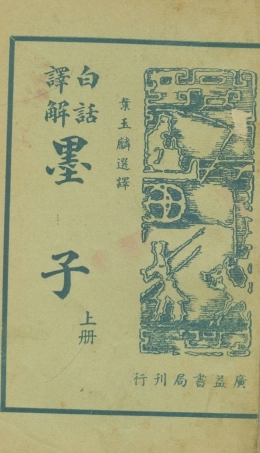 白話
譯解
墨子
上册
葉玉麟選譯
行刊局書益廣